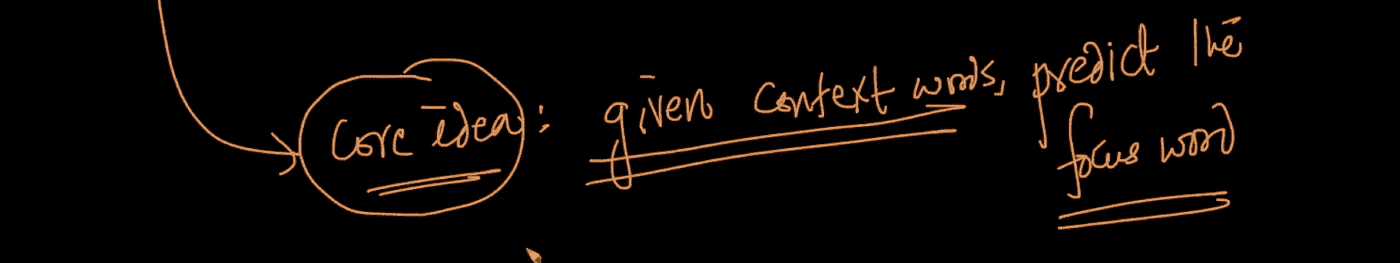 Core idea: given context words, predict the
focus word